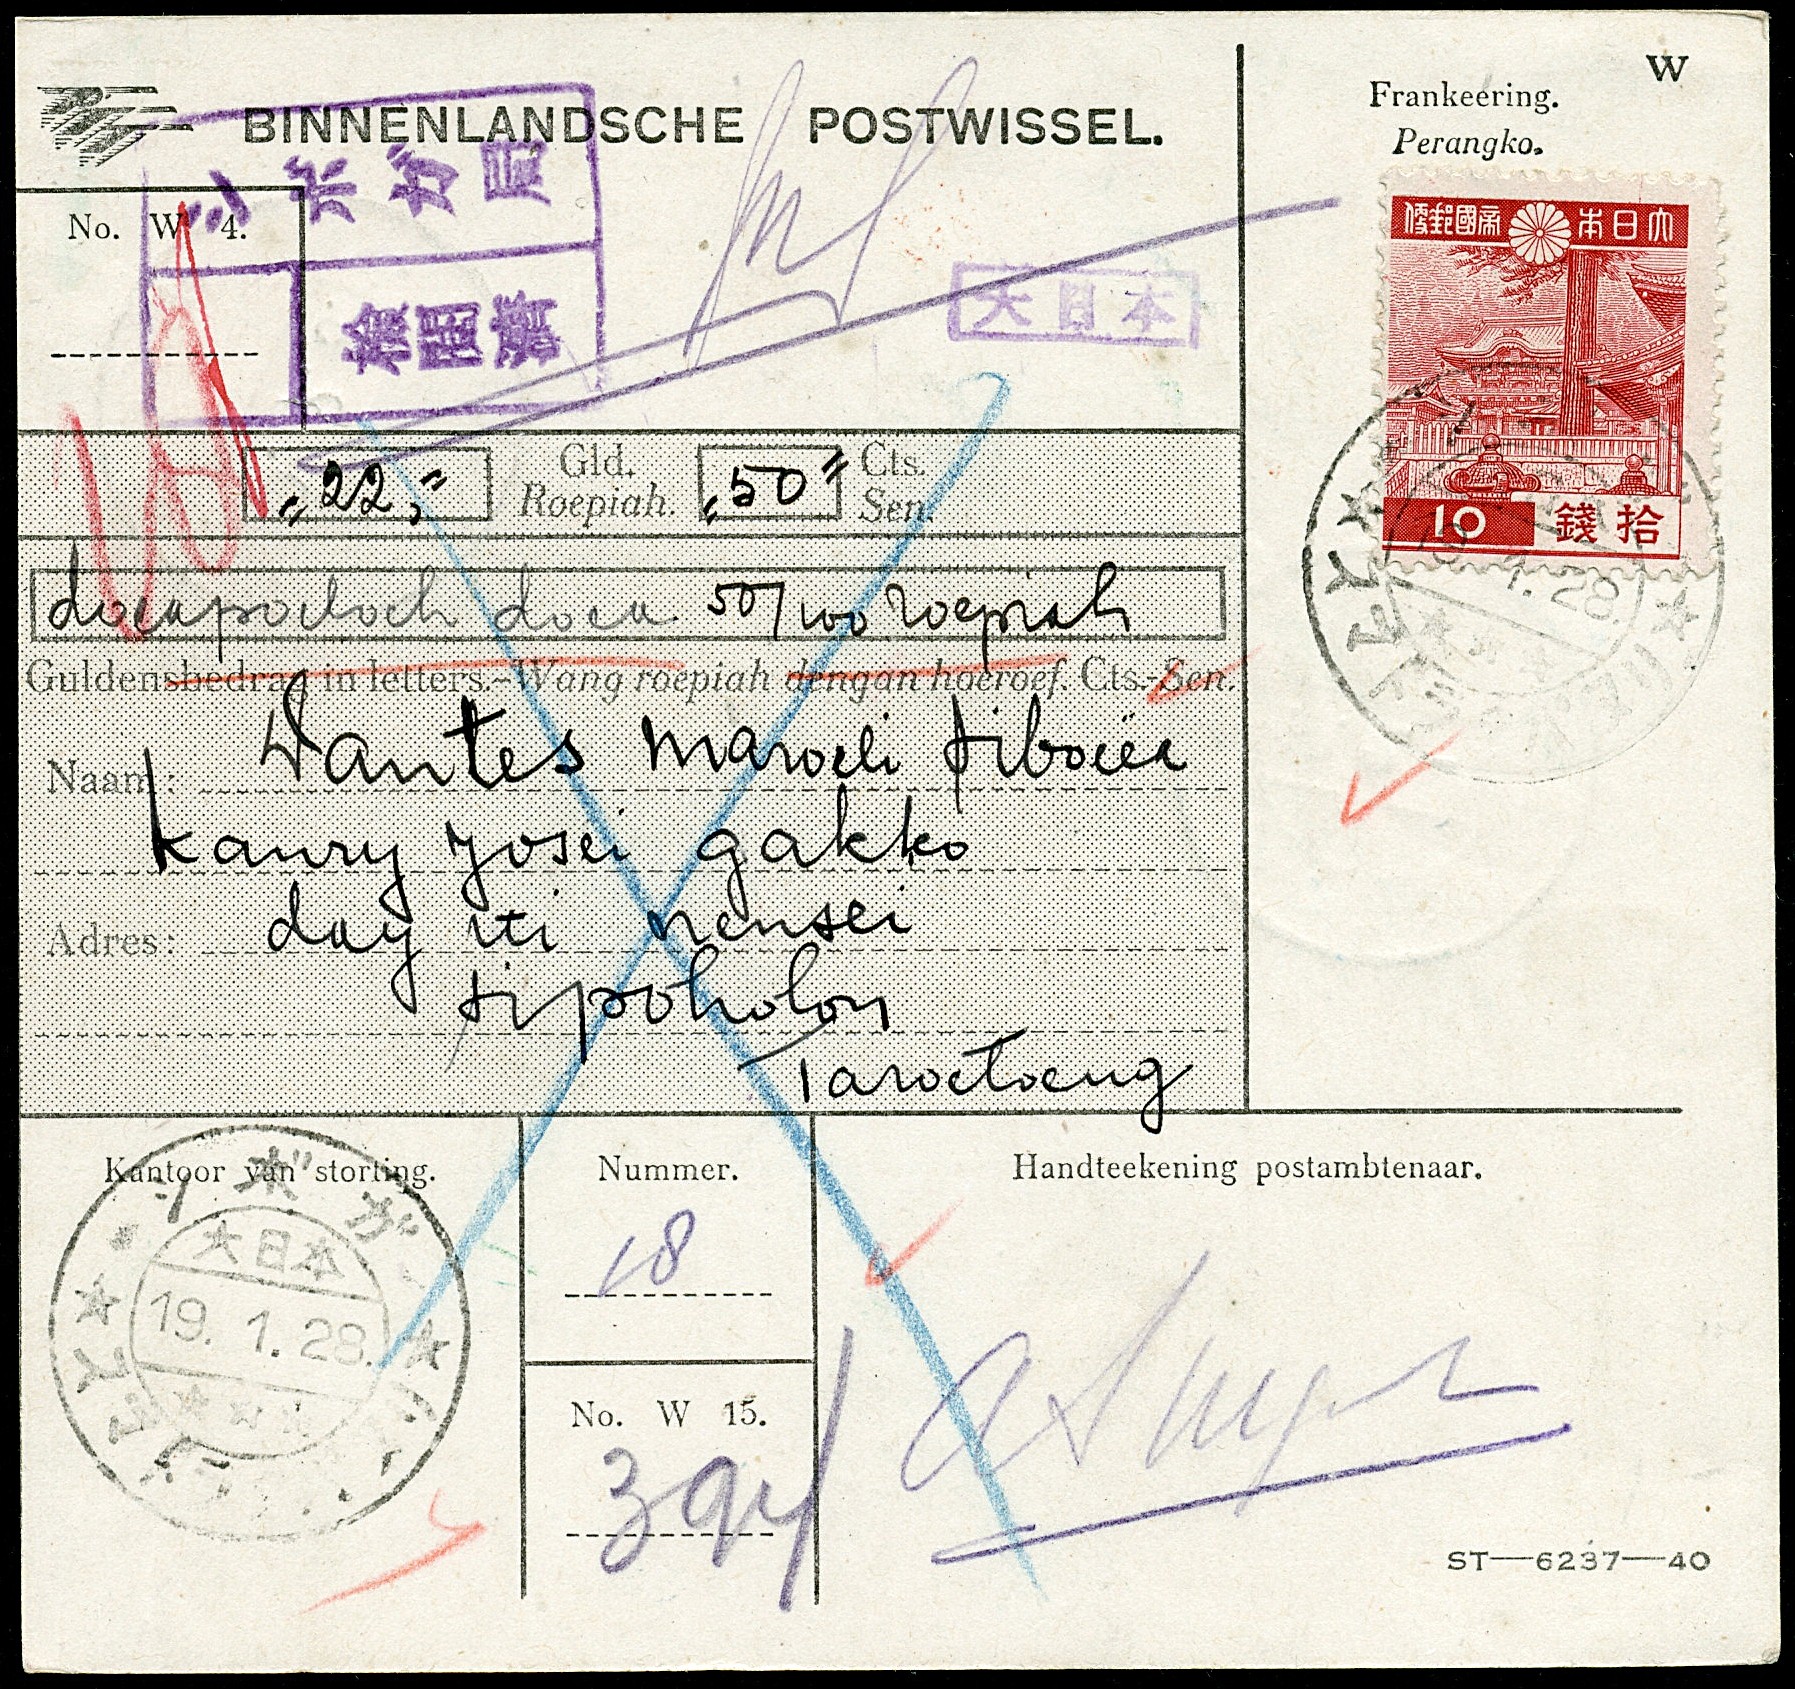 BINNENLANDSCHE POSTWISSEL.
W
Frankeering.
Perangko.
シボガ局
検閲済
No. W 4.
大日本
大日本 帝國郵便
10 拾錢
„22„ Gld. „50" Cts.
Roepiah. Sen.
doeapoeloeh doea 50/100 roepiah
Guldensbedrag in letters.-Wang roepiah dengan hoeroef Cts.-Sen.
Naam: Wantes Maroeli Siboëa
Kanry Josei gakko
Adres: day iti nensei
Sipoholon
Taroetoeng
1.28.
Kantoor van storting.
Nummer.
Handteekening postambtenaar.
シボガ
大日本
19.1.28.
18
No. W 15.
394
ST—6237—40